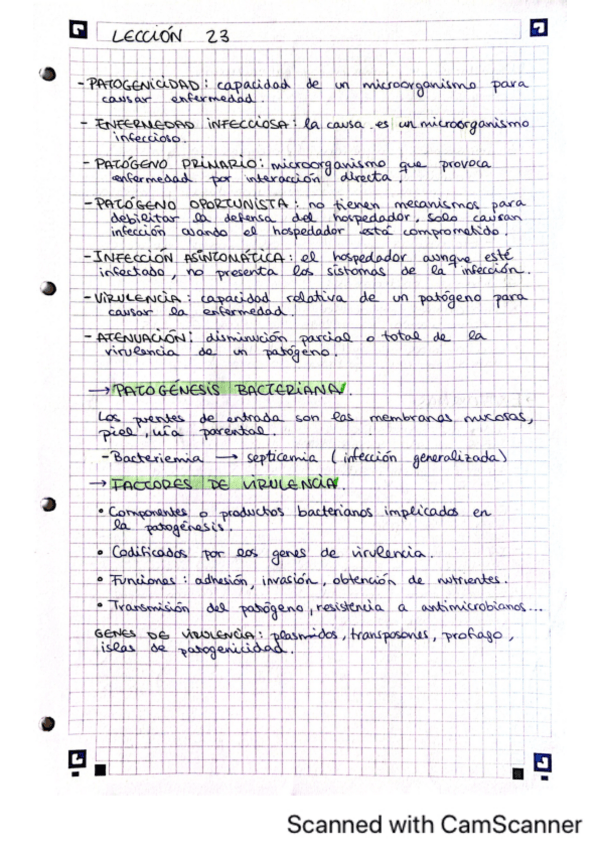 LECCIÓN 23
- PATOGENICIDAD: capacidad de un microorganismo para
causar enfermedad.
- ENFERMEDAD INFECCIOSA: la causa es un microorganismo
infeccioso.
- PATÓGENO PRIMARIO: microorganismo que provoca
enfermedad por interacción directa.
- PATÓGENO OPORTUNISTA: no tienen mecanismos para
debilitar la defensa del hospedador, solo causan
infección cuando el hospedador está comprometido.
- INFECCIÓN ASINTOMÁTICA: el hospedador aunque esté
infectado, no presenta los síntomas de la infección.
- VIRULENCIA: capacidad relativa de un patógeno para
causar la enfermedad.
- ATENUACIÓN: disminución parcial o total de la
virulencia de un patógeno.
→ PATOGÉNESIS BACTERIANA.
Los puentes de entrada son las membranas mucosas,
piel, vía parental.
- Bacteriemia → septicemia (infección generalizada)
→ FACTORES DE VIRULENCIA.
• Componentes o productos bacterianos implicados en
la patogénesis.
• Codificados por los genes de virulencia.
• Funciones: adhesión, invasión, obtención de nutrientes.
• Transmisión del patógeno, resistencia a antimicrobianos...
GENES DE VIRULENCIA: plasmidos, transposones, profago,
islas de patogenicidad.
Scanned with CamScanner